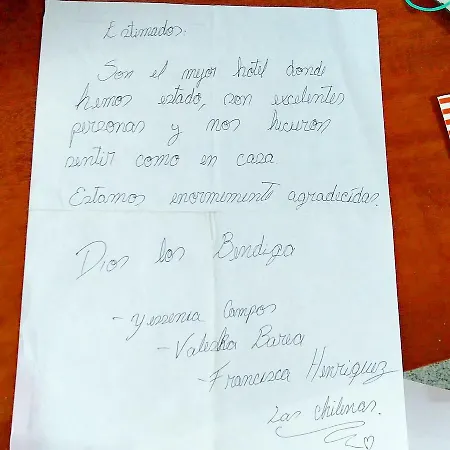 Estimados:
Son el mejor hotel donde
hemos estado, son excelentes
personas y nos hicieron
sentir como en casa
Estamos enormemente agradecidas.
Dios los Bendiga
- Yessenia Campos
- Valeska Barea
- Francisca Henriquez
Las chilenas.